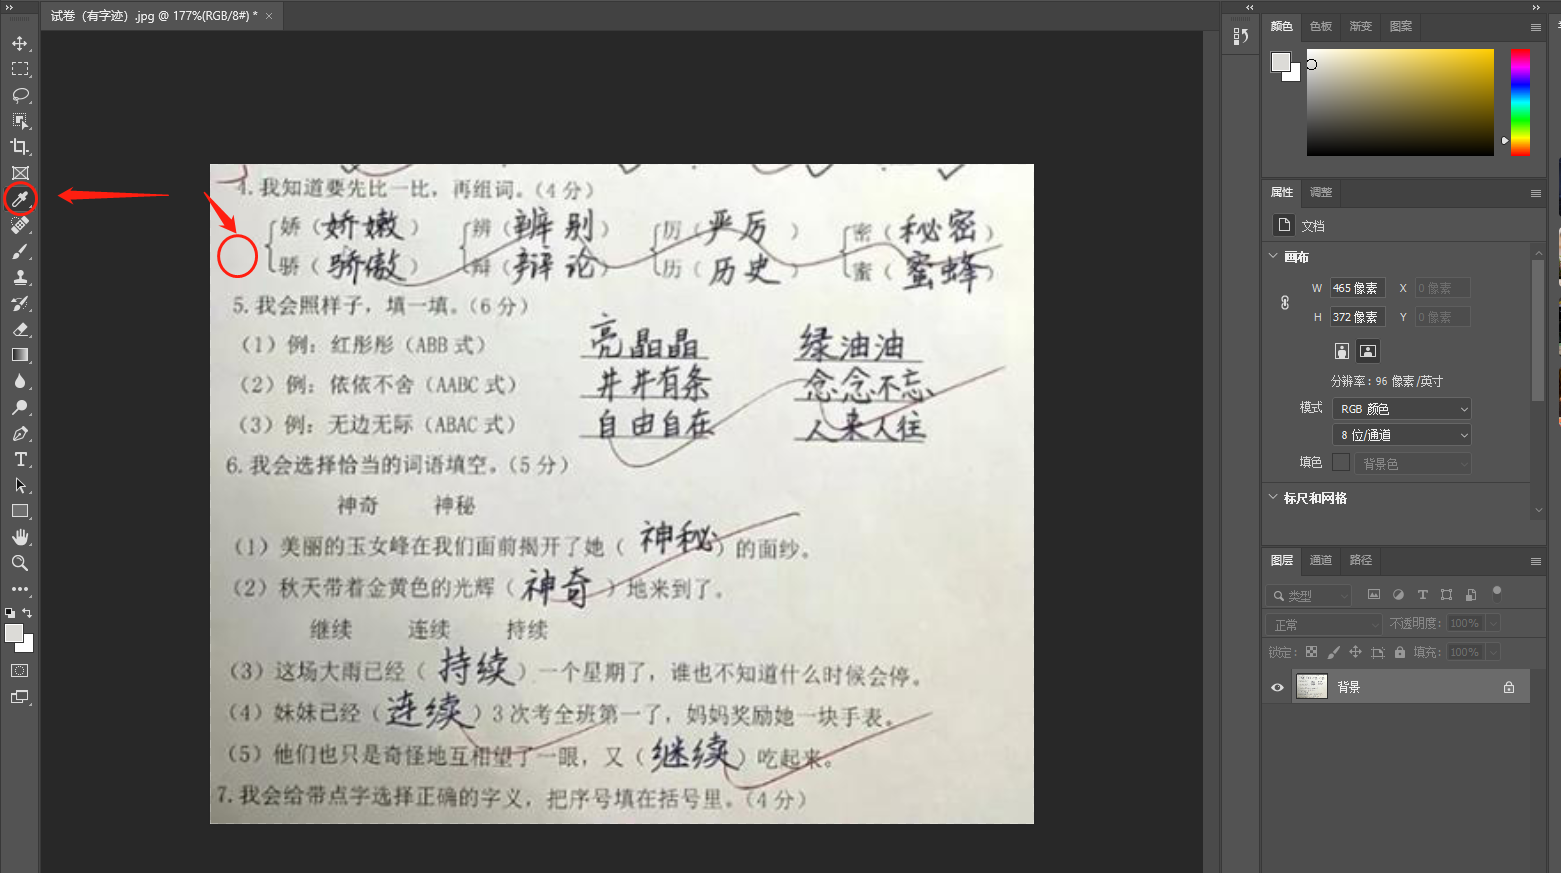 试卷（有字迹）.jpg @ 177%(RGB/8#) * ×
4.我知道要先比一比，再组词。(4分)
娇（娇嫩） 辨（辨别） 厉（严厉） 密（秘密）
骄（骄傲） 辩（辩论） 历（历史） 蜜（蜜蜂）
5.我会照样子，填一填。(6分)
(1) 例：红彤彤（ABB 式） 亮晶晶 绿油油
(2) 例：依依不舍（AABC 式） 井井有条 念念不忘
(3) 例：无边无际（ABAC 式） 自由自在 人来人往
6.我会选择恰当的词语填空。(5分)
神奇 神秘
(1) 美丽的玉女峰在我们面前揭开了她（神秘）的面纱。
(2) 秋天带着金黄色的光辉（神奇）地来到了。
继续 连续 持续
(3) 这场大雨已经（持续）一个星期了，谁也不知道什么时候会停。
(4) 妹妹已经（连续）3次考全班第一了，妈妈奖励她一块手表。
(5) 他们也只是奇怪地互相望了一眼，又（继续）吃起来。
7.我会给带点字选择正确的字义，把序号填在括号里。(4分)
颜色 色板 渐变 图案
属性 调整
文档
画布
W 465 像素 X 0 像素
H 372 像素 Y 0 像素
分辨率: 96 像素/英寸
模式 RGB 颜色
8 位/通道
填色 背景色
标尺和网格
图层 通道 路径
类型
正常 不透明度: 100%
锁定: 填充: 100%
背景